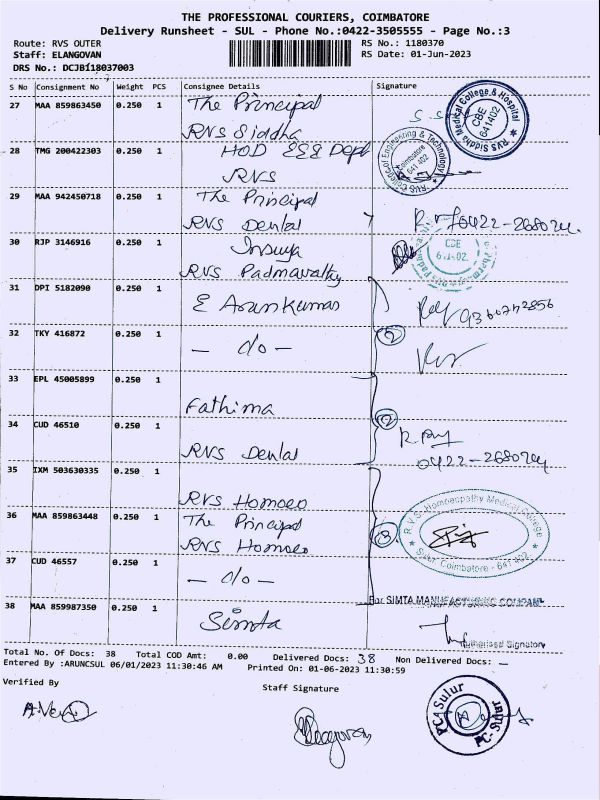 THE PROFESSIONAL COURIERS, COIMBATORE
Delivery Runsheet - SUL - Phone No.:0422-3505555 - Page No.:3
Route: RVS OUTER
RS No.: 1180370
Staff: ELANGOVAN
RS Date: 01-Jun-2023
DRS No.: DCJBI18037003
S No Consignment No Weight PCS Consignee Details Signature
27 MAA 859863450 0.250 1 The Principal
RVS Siddha
RVS Siddha Medical College & Hospital
CBE
641402
28 TMG 200422303 0.250 1 HOD EEE Dept
RVS
RVS College of Engineering & Technology
Coimbatore
641 402
29 MAA 942450718 0.250 1 The Principal
RVS Dental
30 RJP 3146916 0.250 1
RVS Padmavathy
CBE
641402
31 DPI 5182090 0.250 1 E Arunkumar
9360742856
32 TKY 416872 0.250 1 - do -
2
33 EPL 45005899 0.250 1
Fathima
34 CUD 46510 0.250 1
RVS Dental
35 IXM 503630335 0.250 1
RVS Homoeo
36 MAA 859863448 0.250 1 The Principal
RVS Homoeo
3
R.V.S. Homoeopathy Medical College
Sulur, Coimbatore - 641 402
37 CUD 46557 0.250 1 - do -
38 MAA 859987350 0.250 1 Simta
For SIMTA MANUFACTURING COMPANY
Authorised Signatory
Total No. Of Docs: 38 Total COD Amt: 0.00 Delivered Docs: 38 Non Delivered Docs: -
Entered By :ARUNCSUL 06/01/2023 11:30:46 AM Printed On: 01-06-2023 11:30:59
Verified By
Staff Signature
PC Sulur
PC- Sulur